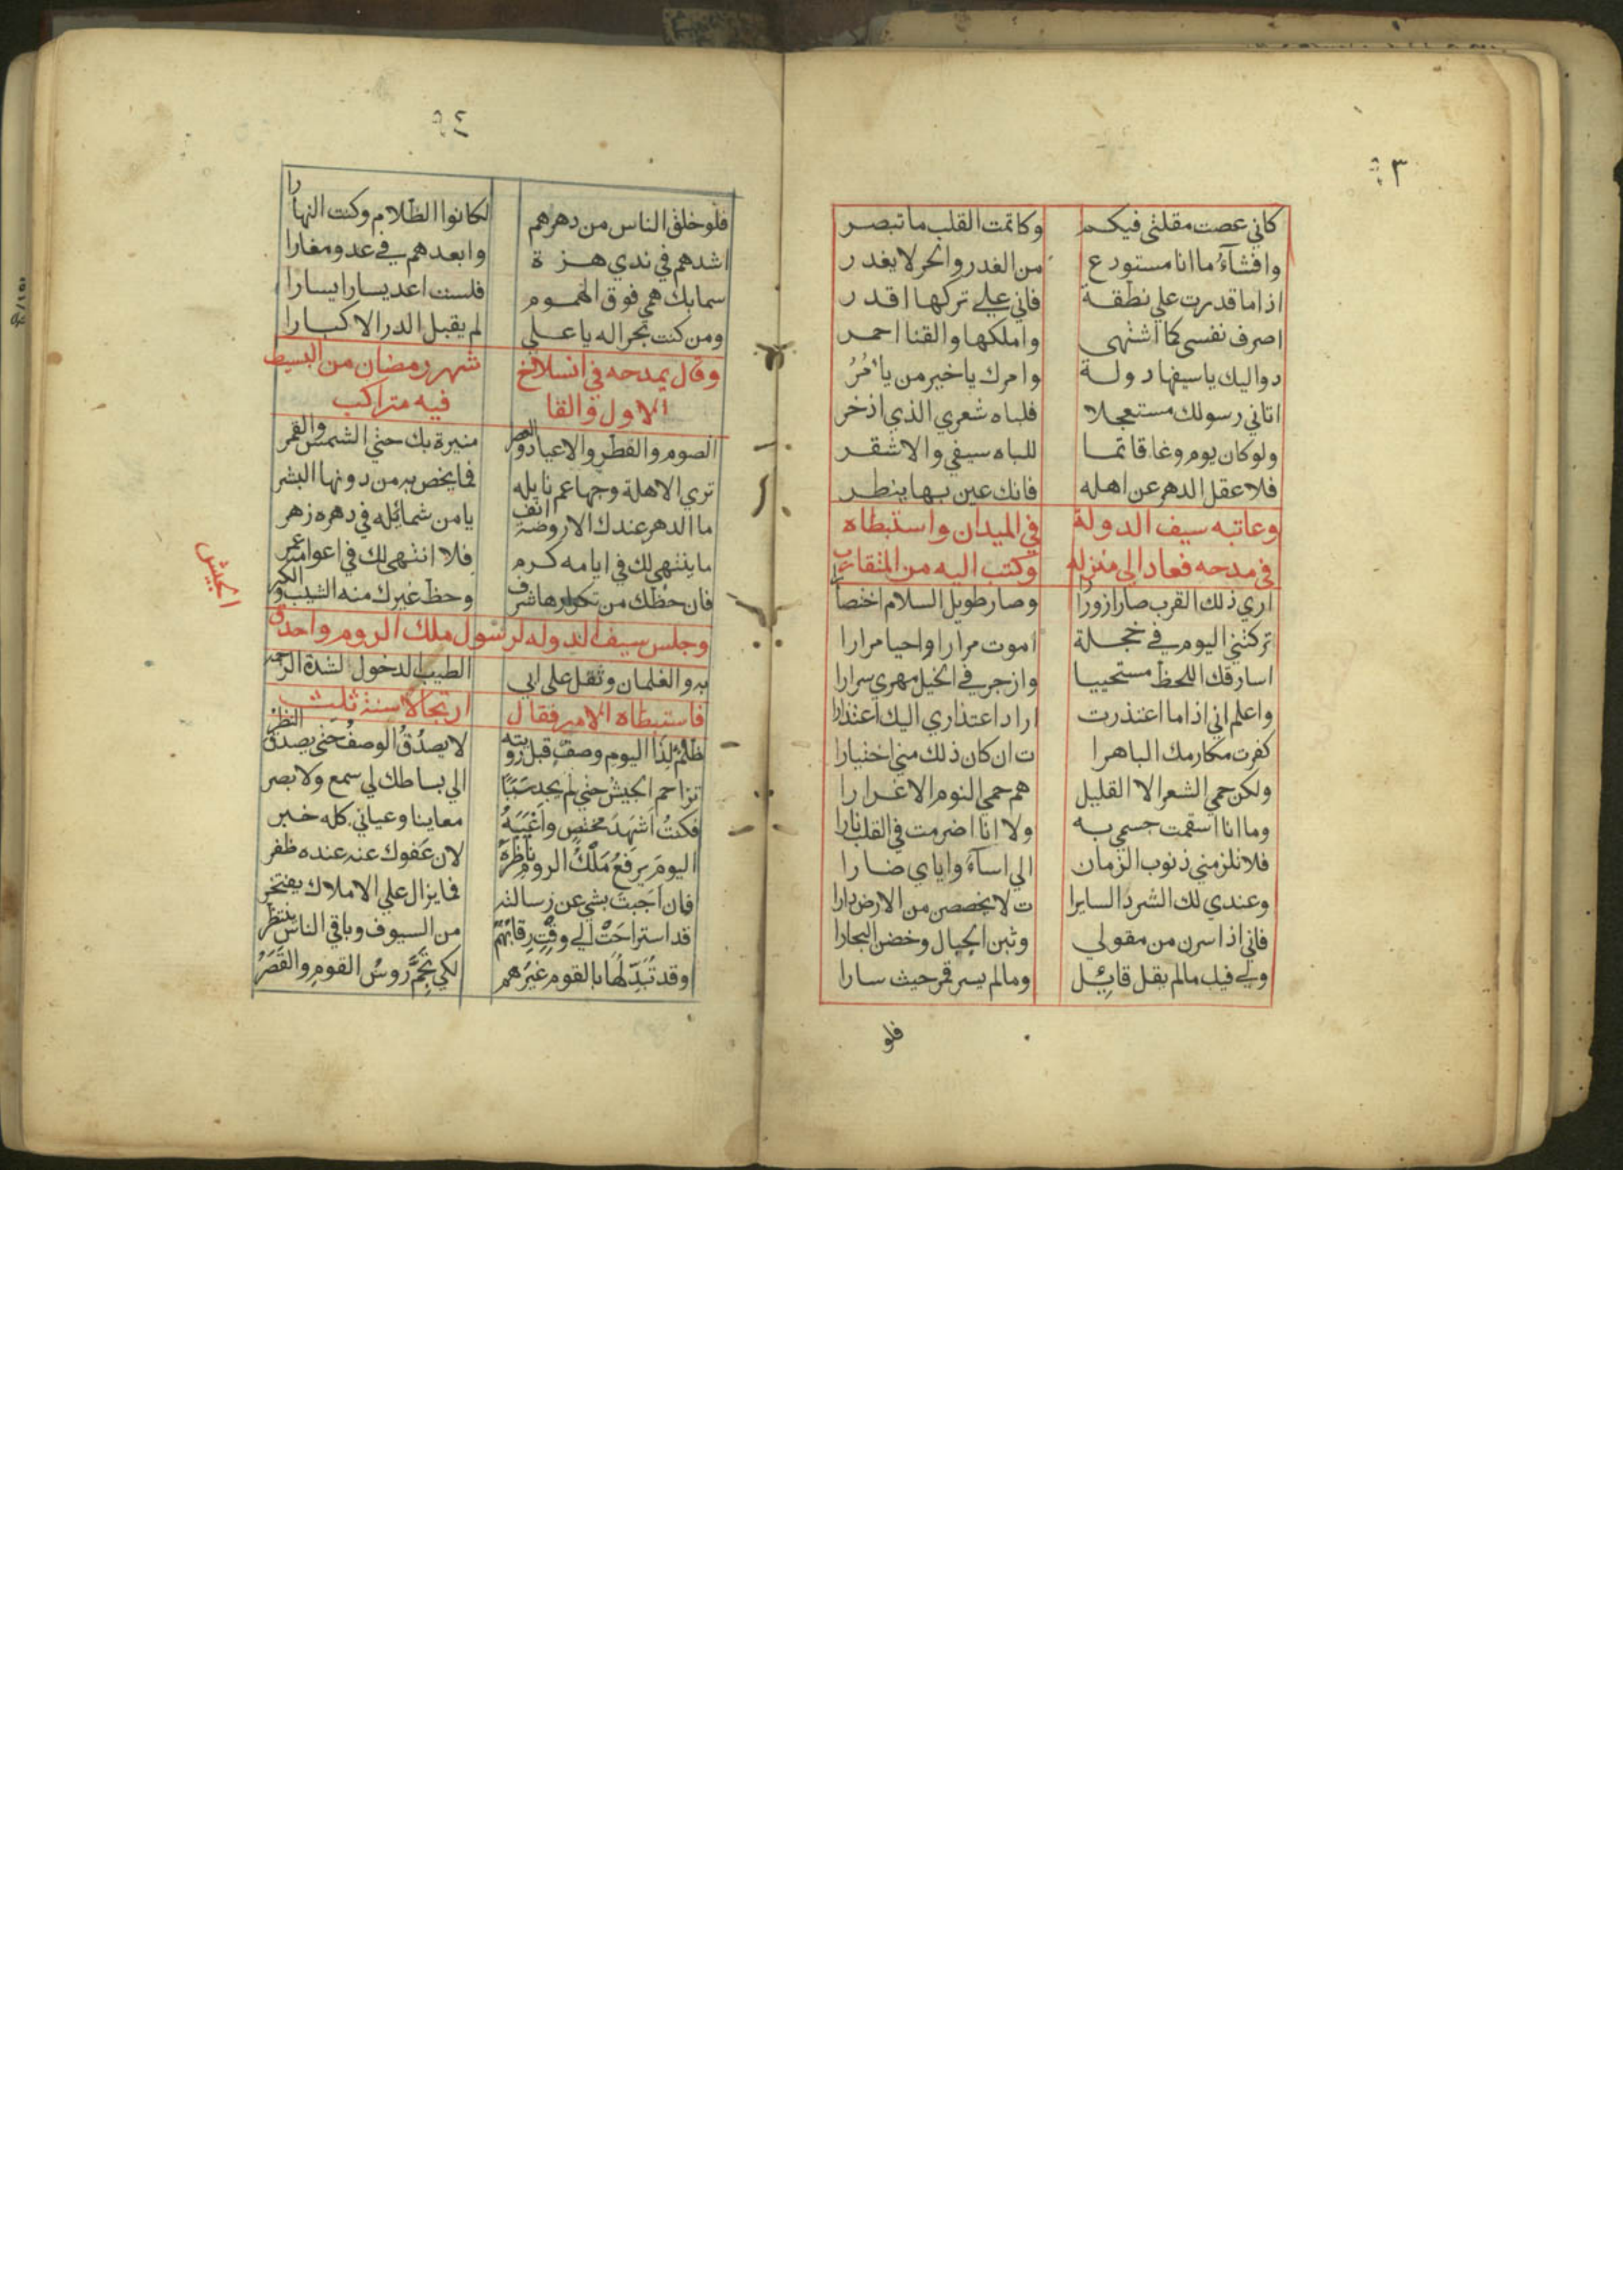 ٥٣
كاني عصت مقلتي فيكم وكاتمت القلب ما تبصر
وافشآءُ ما انا مستودع من الغدر والحر لا يغدر
اذا ما قدرت علي نطقة فاني علي تركها اقدر
اصرف نفسي كما اشتهي واملكها والقنا احمر
دواليك يا سيفها دولة وامرك يا خير من يأمُرُ
اتاني رسولك مستعجلا فلباه شعري الذي اذخر
ولو كان يوم وغا قاتما للباه سيفي والاشقر
فلا عقل الدهر عن اهله فانك عين بها ينظر
وعاتبه سيف الدولة في الميدان واستبطاه
في مدحه فعاد الي منزله وكتب اليه من المتقارب
اري ذلك القرب صار ازورارا وصار طويل السلام اختصارا
تركتني اليوم في خجلة اموت مرارا واحيا مرارا
اسارقك اللحظ مستحييا وازجر في الخيل مهري سرارا
واعلم اني اذا ما اعتذرت اراد اعتذاري اليك اعتذارا
كفرت مكارمك الباهرا ت ان كان ذلك مني اختيارا
ولكن حمي الشعر الا القليل هم حمي النوم الا غرارا
وما انا اسقمت جسمي به ولا انا اضرمت في القلب نارا
فلا تلزمني ذنوب الزمان الي اسآء واياي ضارا
وعندي لك الشرد السايرا ت لا يخصصن من الارض دارا
فاني اذا سرن من مقولي وثبن الجبال وخضن البحارا
ولي فيك ما لم يقل قائل وما لم يسر قمر حيث سارا
فلو
٥٤
فلو خلق الناس من دهرهم لكانوا الظلام وكنت النهارا
اشدهم في ندي هزة وابعدهم في عدو مغارا
سما بك همي فوق الهموم فلست اعد يسارا يسارا
ومن كنت بحرا له يا علي لم يقبل الدر الا كبارا
وقال يمدحه في انسلاخ شهر رمضان من البسيط
الاول والقا فيه متراكب
الصوم والفطر والاعياد والعصر منيرة بك حتي الشمس والقمر
تري الاهلة وجها عم نايله فما يخص به من دونها البشر
ما الدهر عندك الا روضة انف يا من شمائله في دهره زهر
ما ينتهي لك في ايامه كرم فلا انتهي لك في اعوامه عمر
فان حظك من تكرارها شرف وحظ غيرك منه الشيب والكبر
وجلس سيف الدوله لرسول ملك الروم واحدق
به والغلمان وثقل علي ابي الطيب الدخول لشدة الزحمه
فاستبطاه الامير فقال ارتجالا سنة ثلث
ظُلْمٌ لِذَا اليوم وصفٌ قبل رؤيته لا يصدُقُ الوصفُ حتي يصدق النظرُ
تزاحم الجيشُ حتي لم يجد سَبَبًا الي بساطك لي سمع ولا بصر
فكنتُ اَشهَدَ مختص واَغْيَبَهُ معاينا وعياني كله خبر
اليومَ يرفعُ مَلْكُ الروم ناظِرَهُ لان عفوك عنه عنده ظفر
فان اَجبتَ بشي عن رسالته فما يزال علي الاملاك يفتخر
قد استراحَتْ الي وقتٍ رِقابُهُم من السيوف وباقي الناس ينتظر
وقد تُبَدِّلُهَا بالقوم غيرَهم لكي تجمَّ روسُ القومِ والقَصَرُ
الجيش